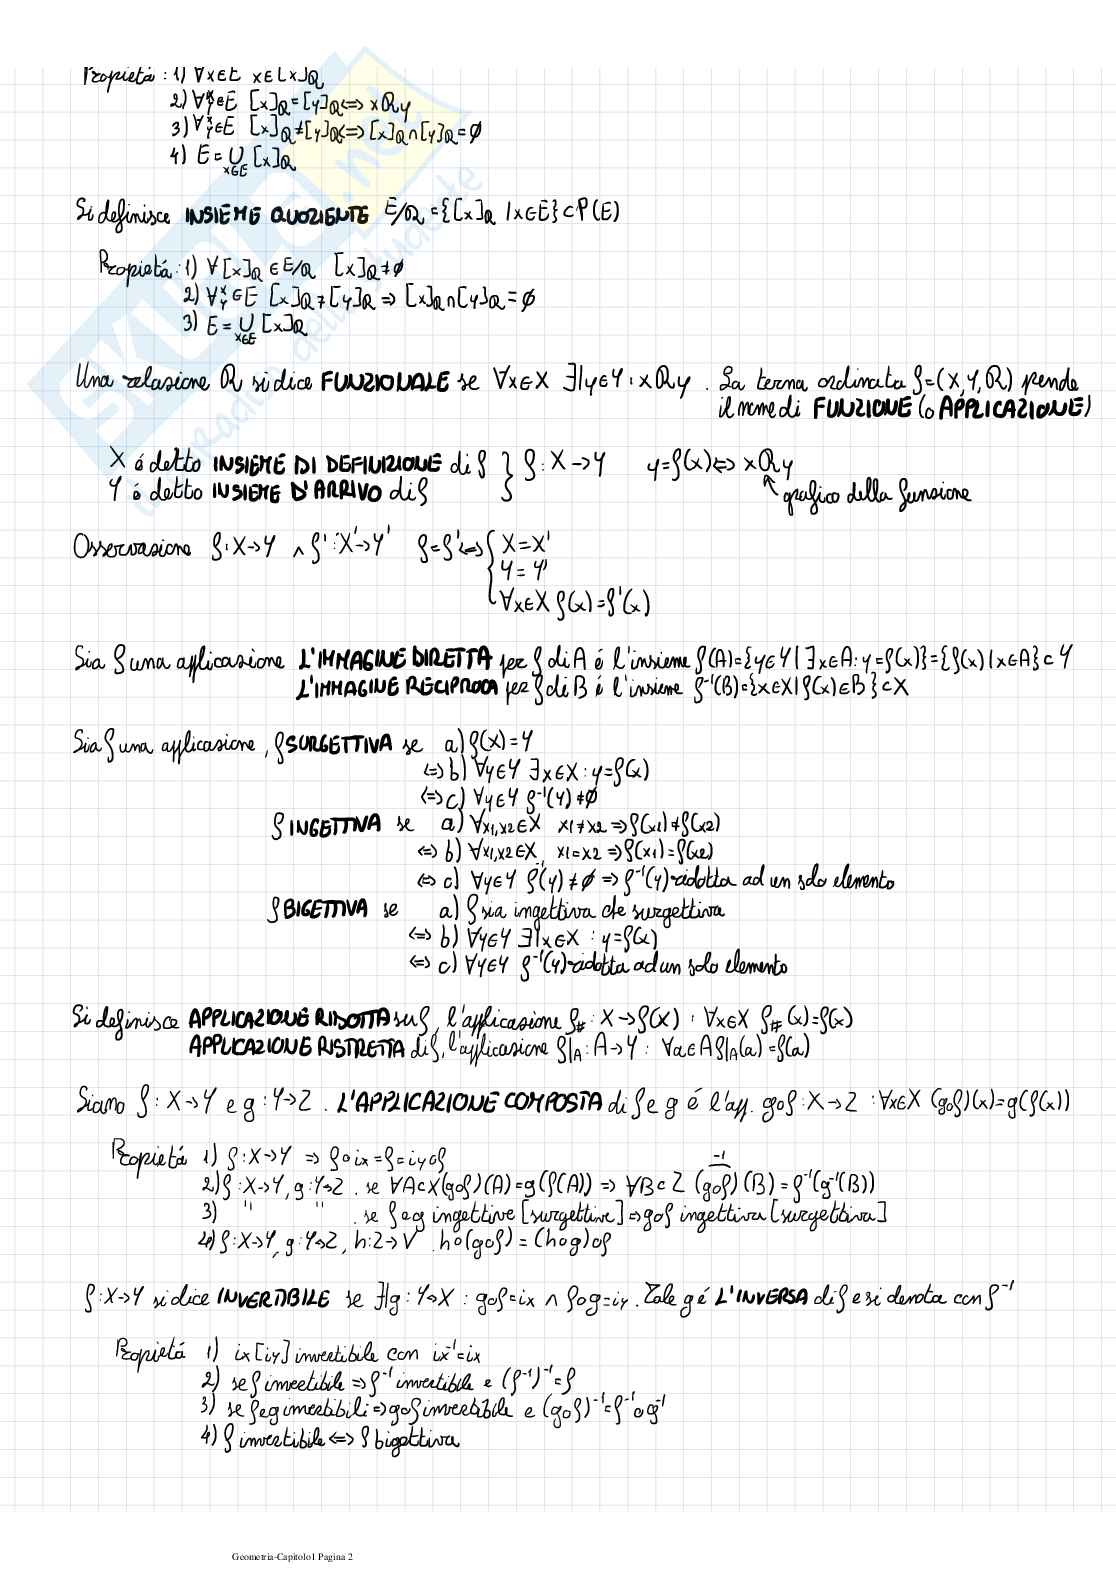 Propietá : 1) ∀x∈E x∈[x]ℛ
2) ∀x,y∈E [x]ℛ=[y]ℛ⇔ xℛy
3) ∀x,y∈E [x]ℛ≠[y]ℛ⇔[x]ℛ∩[y]ℛ=∅
4) E = ∪x∈E [x]ℛ
Si definisce INSIEME QUOZIENTE E/ℛ ={[x]ℛ |x∈E}⊂P(E)
Propietá : 1) ∀[x]ℛ∈E/ℛ [x]ℛ≠∅
2) ∀x,y∈E [x]ℛ≠[y]ℛ ⇒ [x]ℛ∩[y]ℛ=∅
3) E = ∪x∈E [x]ℛ
Una relazione ℛ si dice FUNZIONALE se ∀x∈X ∃|y∈Y : xℛy . La terna ordinata f=(X,Y,ℛ) pende
il nome di FUNZIONE (o APPLICAZIONE)
X é detto INSIEME DI DEFINIZIONE di f } f : X→Y y=f(x)⇔xℛy
Y é detto INSIEME D'ARRIVO di f
grafico della funzione
Osservazione f:X→Y ∧ f':X'→Y' f=f'⇔{ X=X'
Y=Y'
∀x∈X f(x)=f'(x)
Sia f una applicazione L'IMMAGINE DIRETTA per f di A é l'insieme f(A)={y∈Y| ∃x∈A: y=f(x)}={f(x)|x∈A}⊂Y
L'IMMAGINE RECIPROCA per f di B é l'insieme f⁻¹(B)={x∈X| f(x)∈B}⊂X
Sia f una applicazione, f SURGETTIVA se a) f(X)=Y
⇔ b) ∀y∈Y ∃x∈X : y=f(x)
⇔ c) ∀y∈Y f⁻¹(y)≠∅
f INGETTIVA se a) ∀x1,x2∈X x1≠x2 ⇒f(x1)≠f(x2)
⇔ b) ∀x1,x2∈X, x1=x2 ⇒f(x1)=f(x2)
⇔ c) ∀y∈Y f⁻¹(y)≠∅ ⇒ f⁻¹(y) ridotta ad un solo elemento
f BIGETTIVA se a) f sia ingettiva che surgettiva
⇔ b) ∀y∈Y ∃|x∈X : y=f(x)
⇔ c) ∀y∈Y f⁻¹(y) ridotta ad un solo elemento
Si definisce APPLICAZIONE RIDOTTA su f, l'applicazione f# : X→f(X) : ∀x∈X f#(x)=f(x)
APPLICAZIONE RISTRETTA di f, l'applicazione f|A : A→Y : ∀a∈A f|A(a)=f(a)
Siano f : X→Y e g : Y→Z . L'APPLICAZIONE COMPOSTA di f e g é l'app. g∘f : X→Z : ∀x∈X (g∘f)(x)=g(f(x))
Propietá 1) f:X→Y ⇒ f∘ix=f=iy∘f
2) f:X→Y, g:Y→Z . se ∀A⊂X(g∘f)(A)=g(f(A)) ⇒ ∀B⊂Z (g∘f)⁻¹(B)=f⁻¹(g⁻¹(B))
3) " " . se f e g ingettive [surgettive]⇒g∘f ingettiva [surgettiva]
4) f:X→Y, g:Y→Z, h:Z→V . h∘(g∘f) = (h∘g)∘f
f:X→Y si dice INVERTIBILE se ∃|g : Y→X : g∘f=ix ∧ f∘g=iy. Tale g é L'INVERSA di f e si denota con f⁻¹
Propietá 1) ix[iy] invertibile con ix⁻¹=ix
2) se f invertibile ⇒ f⁻¹ invertibile e (f⁻¹)⁻¹=f
3) se f e g invertibili⇒g∘f invertibile e (g∘f)⁻¹=f⁻¹∘g⁻¹
4) f invertibile ⇔ f bigettiva
Geometria-Capitolo1 Pagina 2